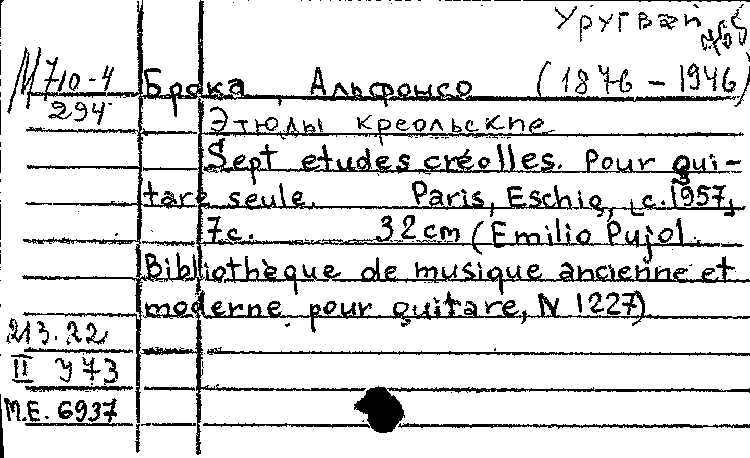 Уругвай
М710-4
294
Брока, Альфонсо (1876-1946)
Этюды креольские
Sept etudes créolles. Pour gui-
tare seule. Paris, Eschig, [c.1957]
7c. 32cm (Emilio Pujol.
Bibliothèque de musique ancienne et
moderne pour guitare, N 1227)
213.22
II У73
М.Е. 6937